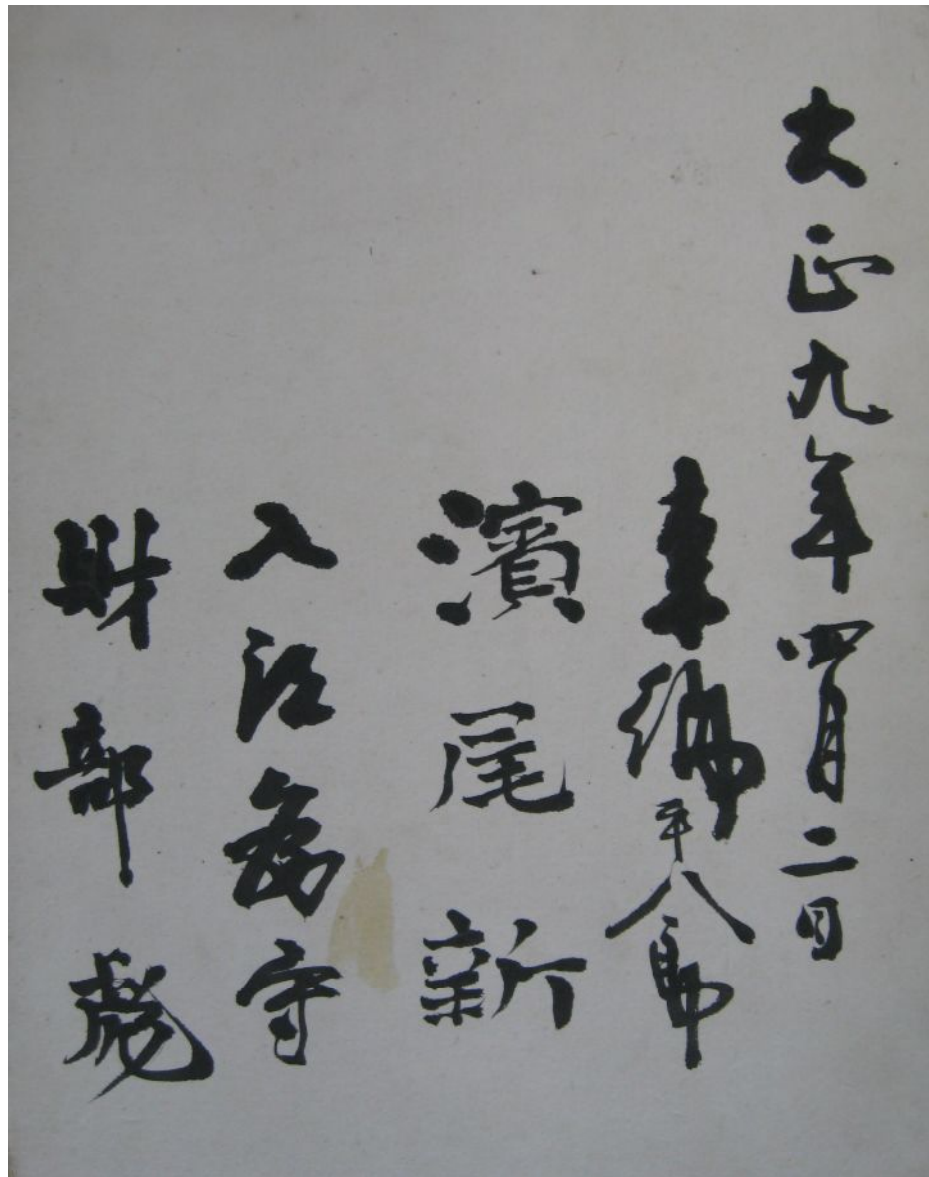 大正九年四月二日
東郷平八郎
濱尾新
入江為守
財部彪